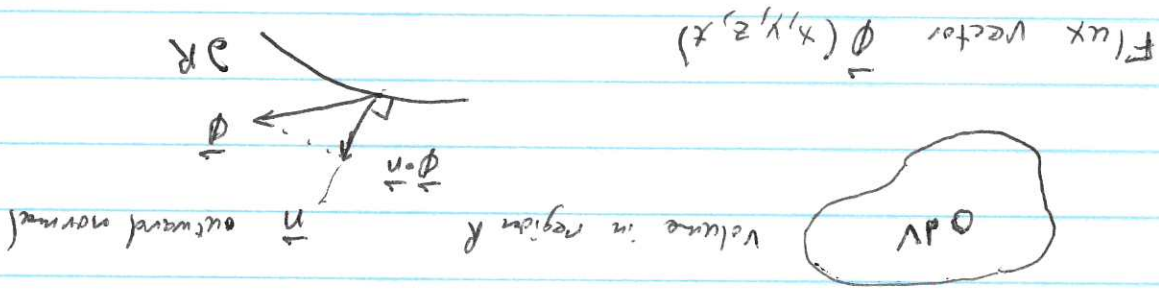 dV Volume in region R n⃗ outward normal
ϕ⃗·n⃗
ϕ⃗
∂R
Flux vector ϕ⃗(x,y,z,t)